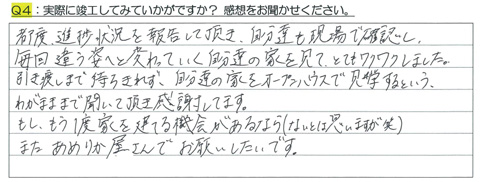 Q4：実際に竣工してみていかがですか？ 感想をお聞かせください。
都度、進捗状況を報告して頂き、自分達も現場で確認し、
毎回違う姿へと変わっていく自分達の家を見て、とてもワクワクしました。
引き渡しまで待ちきれず、自分達の家をオープンハウスで見学するという、
わがまままで聞いて頂き感謝してます。
もし、もう1度家を建てる機会があるなら(ないとは思いますが笑)
また あめりか屋さんで お願いしたいです。